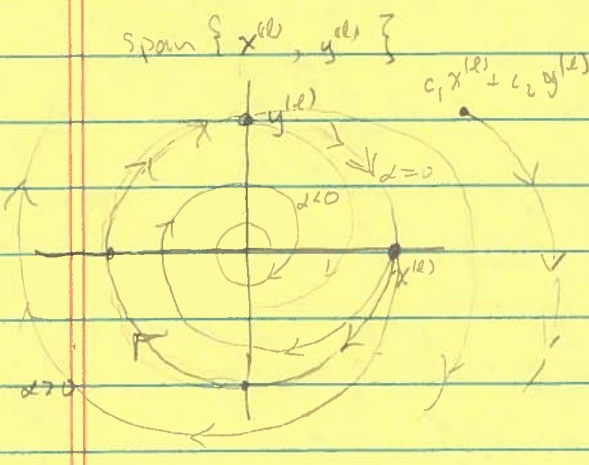 span { x^(l), y^(l) }
c₁ x^(l) + c₂ y^(l)
y^(l)
α=0
α<0
x^(l)
α>0